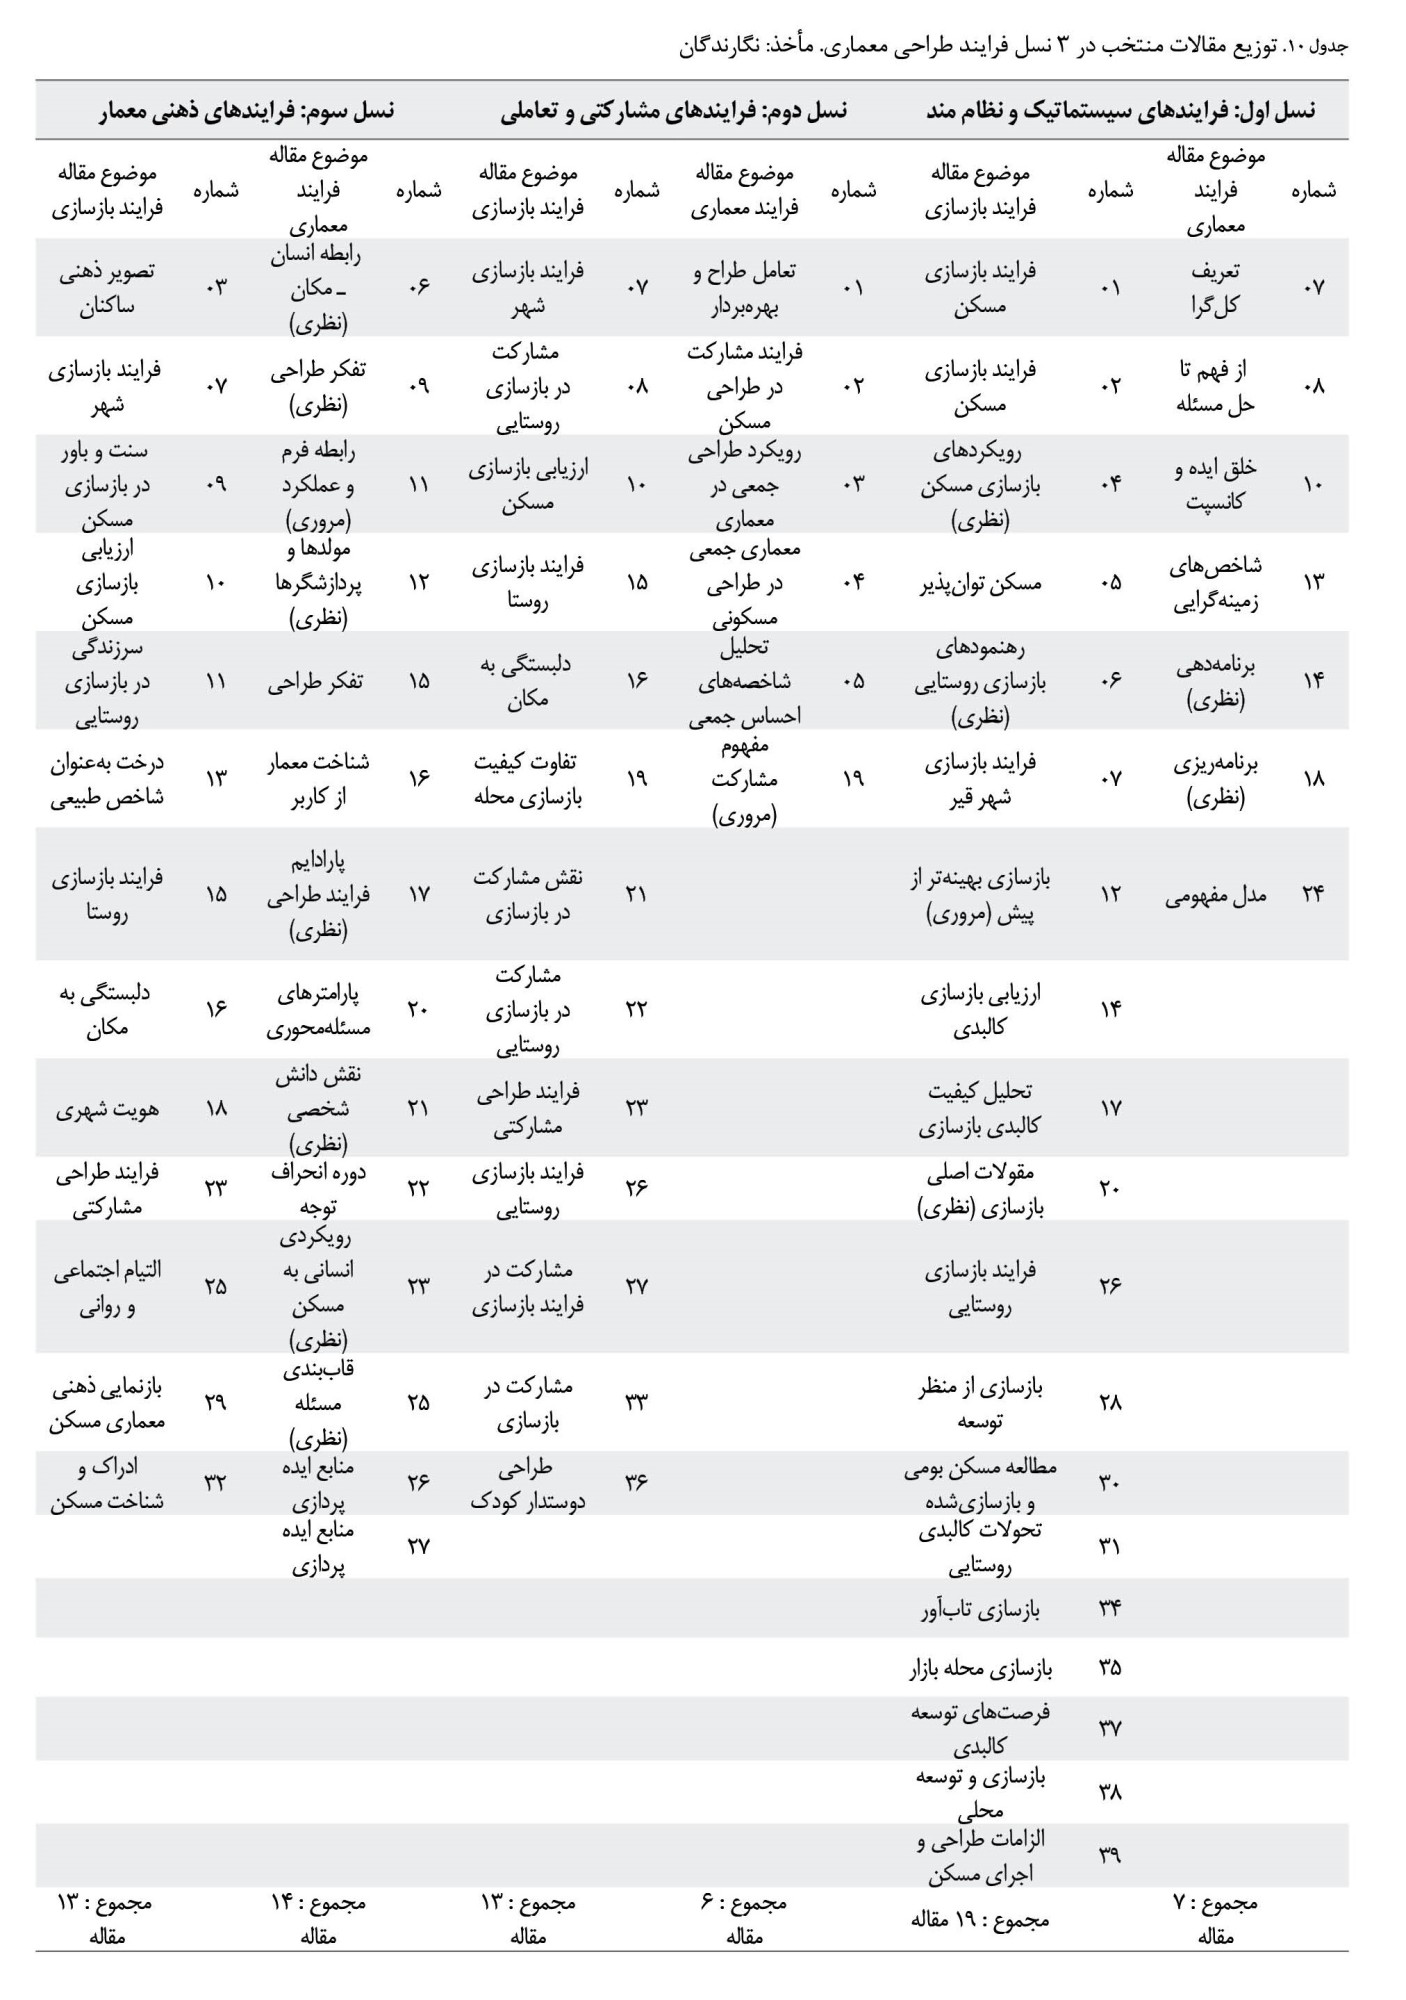 جدول ۱۰. توزیع مقالات منتخب در ۳ نسل فرایند طراحی معماری. مأخذ: نگارندگان
نسل اول: فرایندهای سیستماتیک و نظام مند
نسل دوم: فرایندهای مشارکتی و تعاملی
نسل سوم: فرایندهای ذهنی معمار
شماره
موضوع مقاله
فرایند
معماری
شماره
موضوع مقاله
فرایند بازسازی
شماره
موضوع مقاله
فرایند معماری
شماره
موضوع مقاله
فرایند بازسازی
شماره
موضوع مقاله
فرایند
معماری
شماره
موضوع مقاله
فرایند بازسازی
۰۷
تعریف
کل‌گرا
۰۱
فرایند بازسازی
مسکن
۰۱
تعامل طراح و
بهره‌بردار
۰۷
فرایند بازسازی
شهر
۰۶
رابطه انسان
ـ مکان
(نظری)
۰۳
تصویر ذهنی
ساکنان
۰۸
از فهم تا
حل مسئله
۰۲
فرایند بازسازی
مسکن
۰۲
فرایند مشارکت
در طراحی
مسکن
۰۸
مشارکت
در بازسازی
روستایی
۰۹
تفکر طراحی
(نظری)
۰۷
فرایند بازسازی
شهر
۱۰
خلق ایده و
کانسپت
۰۴
رویکردهای
بازسازی مسکن
(نظری)
۰۳
رویکرد طراحی
جمعی در
معماری
۱۰
ارزیابی بازسازی
مسکن
۱۱
رابطه فرم
و عملکرد
(مروری)
۰۹
سنت و باور
در بازسازی
مسکن
۱۳
شاخص‌های
زمینه‌گرایی
۰۵
مسکن توان‌پذیر
۰۴
معماری جمعی
در طراحی
مسکونی
۱۵
فرایند بازسازی
روستا
۱۲
مولدها و
پردازشگرها
(نظری)
۱۰
ارزیابی
بازسازی
مسکن
۱۴
برنامه‌دهی
(نظری)
۰۶
رهنمودهای
بازسازی روستایی
(نظری)
۰۵
تحلیل
شاخصه‌های
احساس جمعی
۱۶
دلبستگی به
مکان
۱۵
تفکر طراحی
۱۱
سرزندگی
در بازسازی
روستایی
۱۸
برنامه‌ریزی
(نظری)
۰۷
فرایند بازسازی
شهر قیر
۱۹
مفهوم
مشارکت
(مروری)
۱۹
تفاوت کیفیت
بازسازی محله
۱۶
شناخت معمار
از کاربر
۱۳
درخت به‌عنوان
شاخص طبیعی
۲۴
مدل مفهومی
۱۲
بازسازی بهینه‌تر از
پیش (مروری)
۲۱
نقش مشارکت
در بازسازی
۱۷
پارادایم
فرایند طراحی
(نظری)
۱۵
فرایند بازسازی
روستا
۱۴
ارزیابی بازسازی
کالبدی
۲۲
مشارکت
در بازسازی
روستایی
۲۰
پارامترهای
مسئله‌محوری
۱۶
دلبستگی به
مکان
۱۷
تحلیل کیفیت
کالبدی بازسازی
۲۳
فرایند طراحی
مشارکتی
۲۱
نقش دانش
شخصی
(نظری)
۱۸
هویت شهری
۲۰
مقولات اصلی
بازسازی (نظری)
۲۶
فرایند بازسازی
روستایی
۲۲
دوره انحراف
توجه
۲۳
فرایند طراحی
مشارکتی
۲۶
فرایند بازسازی
روستایی
۲۷
مشارکت در
فرایند بازسازی
۲۳
رویکردی
انسانی به
مسکن
(نظری)
۲۵
التیام اجتماعی
و روانی
۲۸
بازسازی از منظر
توسعه
۳۳
مشارکت در
بازسازی
۲۵
قاب‌بندی
مسئله
(نظری)
۲۹
بازنمایی ذهنی
معماری مسکن
۳۰
مطالعه مسکن بومی
و بازسازی‌شده
۳۶
طراحی
دوستدار کودک
۲۶
منابع ایده
پردازی
۳۲
ادراک و
شناخت مسکن
۳۱
تحولات کالبدی
روستایی
۲۷
منابع ایده
پردازی
۳۴
بازسازی تاب‌آور
۳۵
بازسازی محله بازار
۳۷
فرصت‌های توسعه
کالبدی
۳۸
بازسازی و توسعه
محلی
۳۹
الزامات طراحی و
اجرای مسکن
مجموع : ۷
مقاله
مجموع : ۱۹ مقاله
مجموع : ۶
مقاله
مجموع : ۱۳
مقاله
مجموع : ۱۴
مقاله
مجموع : ۱۳
مقاله